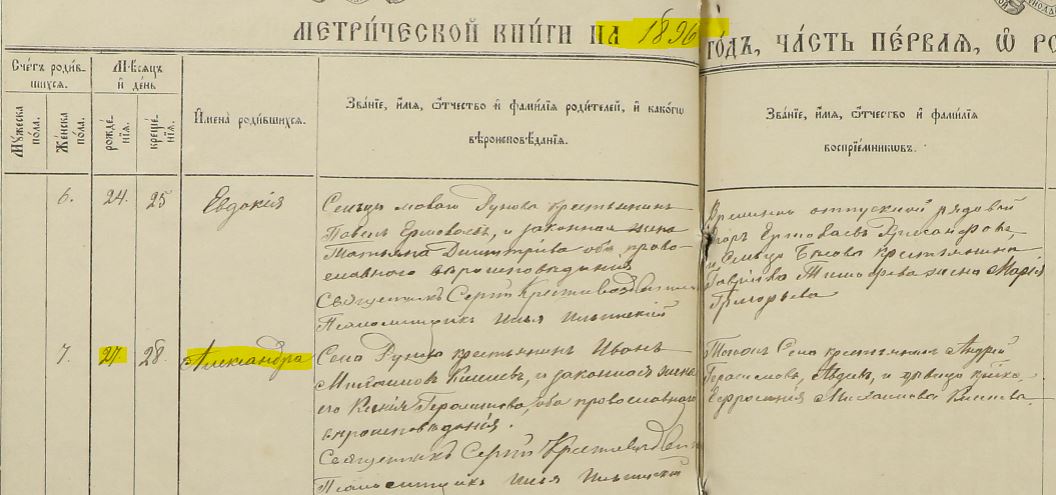 МЕТРИ́ЧЕСКОЙ КНИ́ГИ НА 1896 ГО́ДЪ, ЧА́СТЬ ПЕ́РВАЯ, Ѡ҆ РО
Сче́тъ роди́в-
шихся.
Мѣ́сяцъ
и҆ де́нь
Мꙋ́жеска
по́ла.
Же́нска
по́ла.
рожде́-
нїя.
креще́-
нїя.
И҆мена̀ роди́вшихся.
Зва́нїе, и҆́мя, ѻ҆́тчество и҆ фами́лїя роди́телей, и҆ како́гѡ
вѣроисповѣ́данїя.
Зва́нїе, и҆́мя, ѻ҆́тчество и҆ фами́лїя
воспрїе́мниковъ.
6. 24. 25 Евдокія
Сельца новаго Рунова крестьянинъ
Павелъ Ермолаевъ, и законная жена
Татьяна Димитріева оба право-
славнаго вѣроисповѣданія
Священникъ Сергій Крестовоздвиженскій
Псаломщикъ Илья Ильинскій
Временно отпускной рядовой
Егоръ Ермолаевъ
и Сельца крестьянина
Гаврiила жена Марія
Григорьева
7. 27. 28. Александра
Села Руново крестьянинъ Иванъ
Михаиловъ Киселевъ, и законная жена
его Ксенія Герасимова, оба православнаго
вѣроисповѣданія.
Священникъ Сергій
Псаломщикъ Илья Ильинскій
Тогоже Села крестьянинъ Андрей
Герасимовъ, и дѣвица
Евфросинія Михаилова Киселева.